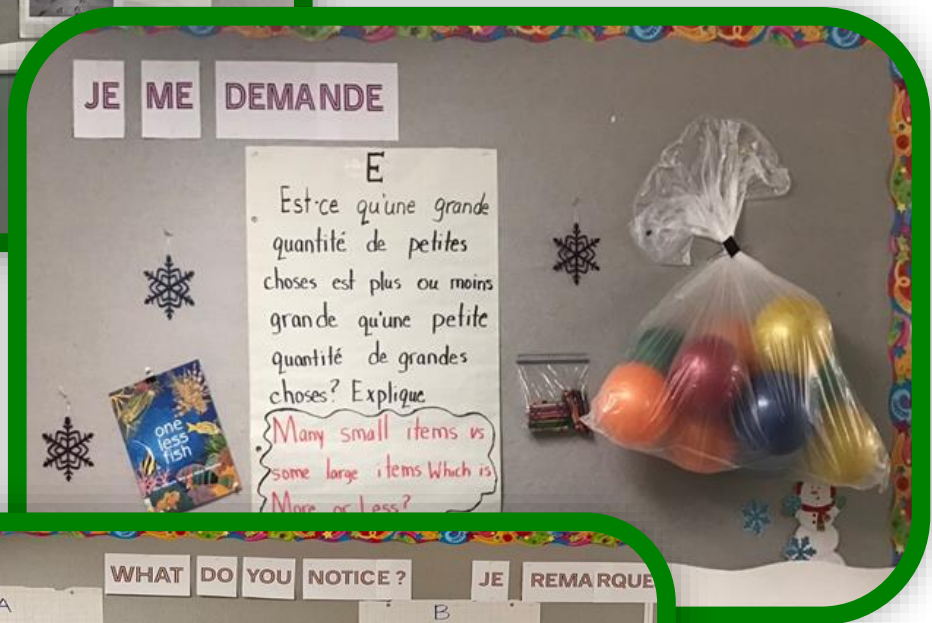 JE ME DEMANDE
E
Est-ce qu'une grande
quantité de petites
choses est plus ou moins
grande qu'une petite
quantité de grandes
choses? Explique
Many small items vs
some large items Which is
More or Less?
one
less
fish
WHAT DO YOU NOTICE?
JE REMARQUE
A
B